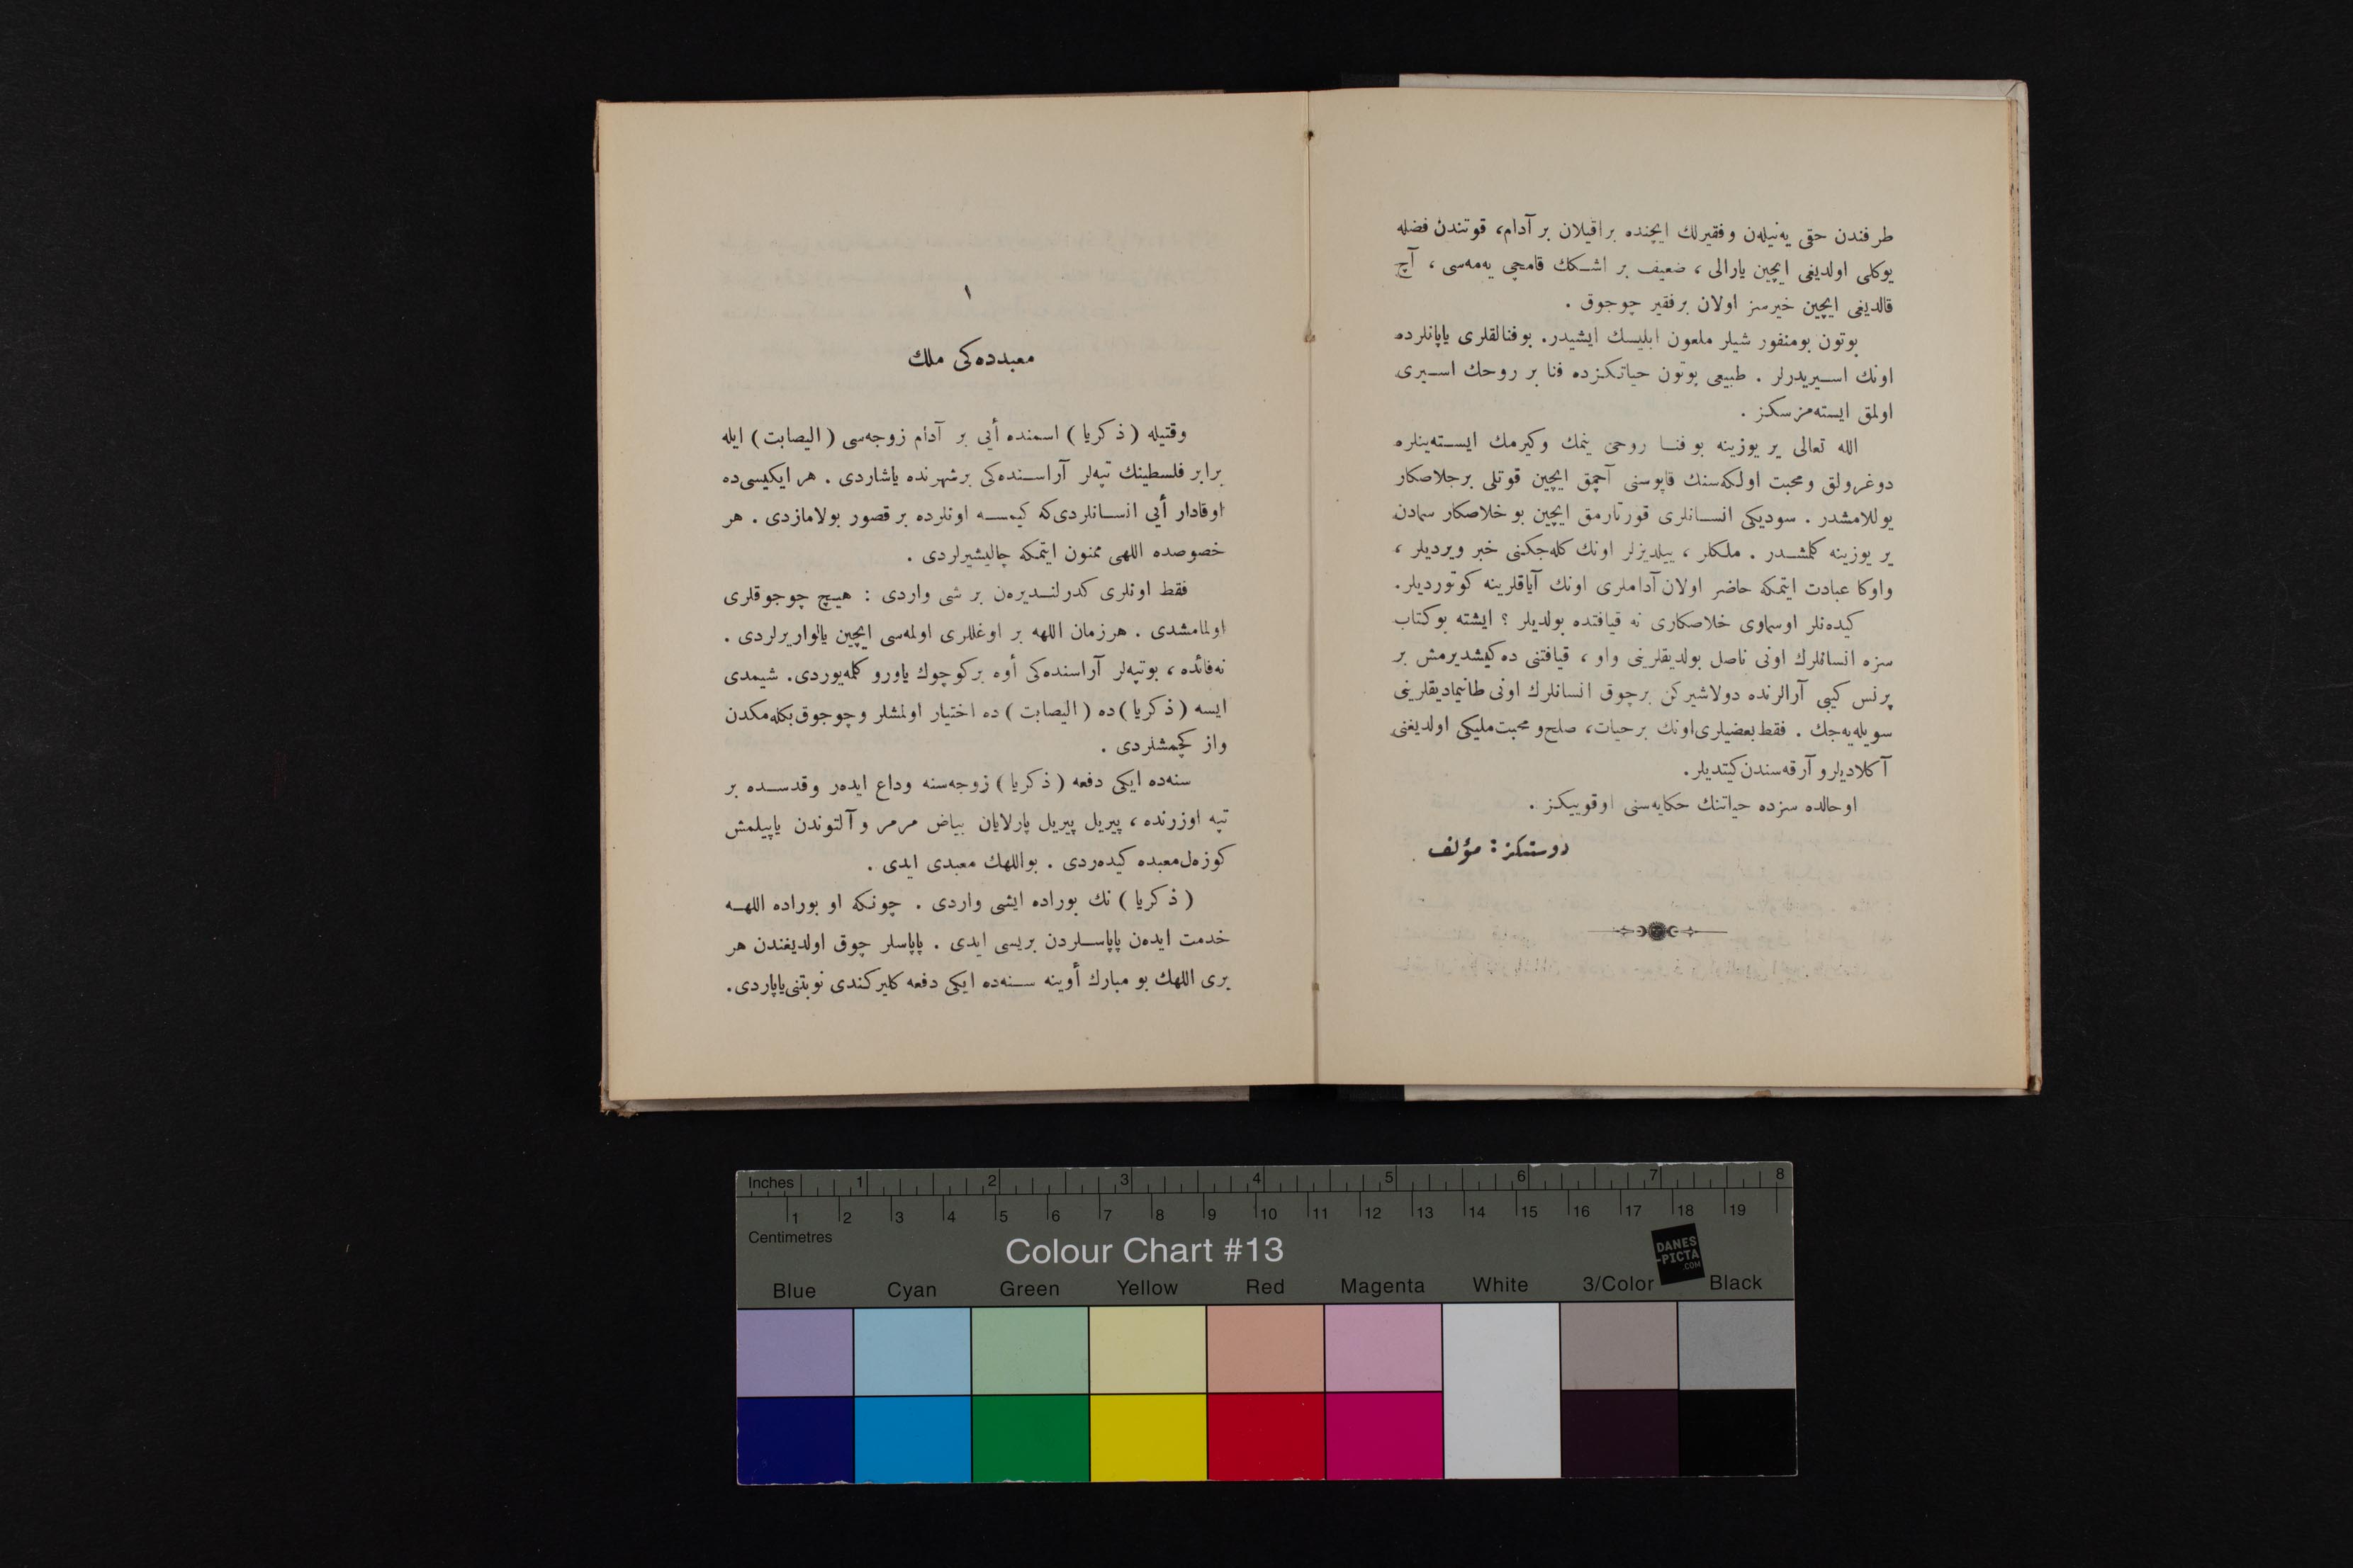 طرفندن حقی یه‌نیله‌ن وفقیرلك ایچنده براقیلان بر آدام، قوتندن فضله
یوكلی اولدیغی ایچین یارالی ، ضعیف بر اشــكك قامچی یه‌مه‌سی ، آچ
قالدیغی ایچین خیرسز اولان برفقیر چوجوق .
بوتون بومنفور شیلر ملعون ابلیسك ایشیدر. بوفنالقلری یاپانلرده
اونك اســیریدرلر . طبیعی بوتون حیاتكزده فنا بر روحك اســیری
اولمق ایسته‌مزسكز .
الله تعالی یر یوزینه بوفنــا روحی ینمك وكیرمك ایســته‌ینلره
دوغرولق ومحبت اولكه‌سنك قاپوسنی آچمق ایچین قوتلی برخلاصكار
یوللامشدر . سودیكی انســانلری قورتارمق ایچین بو خلاصكار سمادن
یر یوزینه كلمشــدر . ملكلر ، ییلدیزلر اونك كله‌جكنی خبر ویردیلر ،
واوكا عبادت ایتمكه حاضر اولان آداملری اونك آیاقلرینه كوتوردیلر.
كیده‌نلر اوسماوی خلاصكاری نه قیافتده بولدیلر ؟ ایشته بوكتاب
سزه انسانلرك اونی ناصل بولدیقلرینی واو ، قیافتنی ده‌كیشدیرمش بر
پرنس كیبی آرالرنده دولاشیركن برچوق انسانلرك اونی طانیمادیقلرینی
سویله‌یه‌جك . فقط بعضیلری اونك برحیات، صلح و محبت ملیكی اولدیغنی
آكلادیلر و آرقه‌سندن كیتدیلر.
اوحالده سزده حیاتنك حكایه‌سنی اوقوییكز .
دوستكز : مؤلف
١
معبدده‌كی ملك
وقتیله ( ذكریا ) اسمنده أیی بر آدام زوجه‌سی ( الیصابت ) ایله
برابر فلسطینك تپه‌لر آراســنده‌كی برشهرنده یاشاردی . هر ایكیسی ده
اوقادار أیی انســانلردی‌كه كیمســه اونلرده بر قصور بولامازدی . هر
خصوصده اللهی ممنون ایتمكه چالیشیرلردی .
فقط اونلری كدرلنــدیره‌ن بر شی واردی : هیــچ چوجوقلری
اولمامشدی . هرزمان اللهه بر اوغللری اولمه‌سی ایچین یالواریرلردی .
نه‌فائده ، بوتپه‌لر آراسنده‌كی أوه بركوچوك یاورو كلمه‌یوردی. شیمدی
ایسه ( ذكریا ) ده ( الیصابت ) ده اختیار اولمشلر وچوجوق بكله‌مكدن
واز كچمشلردی .
سنه‌ده ایكی دفعه ( ذكریا ) زوجه‌سنه وداع ایده‌ر وقدســده بر
تپه اوزرنده ، پیریل پیریل پارلایان بیاض مرمر و آلتوندن یاپیلمش
كوزه‌ل معبده كیده‌ردی . بواللهك معبدی ایدی .
( ذكریا ) نك بوراده ایشی واردی . چونكه او بوراده اللهــه
خدمت ایده‌ن پاپاســلردن بریسی ایدی . پاپاسلر چوق اولدیغندن هر
بری اللهك بو مبارك أوینه ســنه‌ده ایكی دفعه كلیر كندی نوبتنی یاپاردی.
Inches 1 2 3 4 5 6 7 8
1 2 3 4 5 6 7 8 9 10 11 12 13 14 15 16 17 18 19
Centimetres
Colour Chart #13
DANES
-PICTA
.COM
Blue Cyan Green Yellow Red Magenta White 3/Color Black